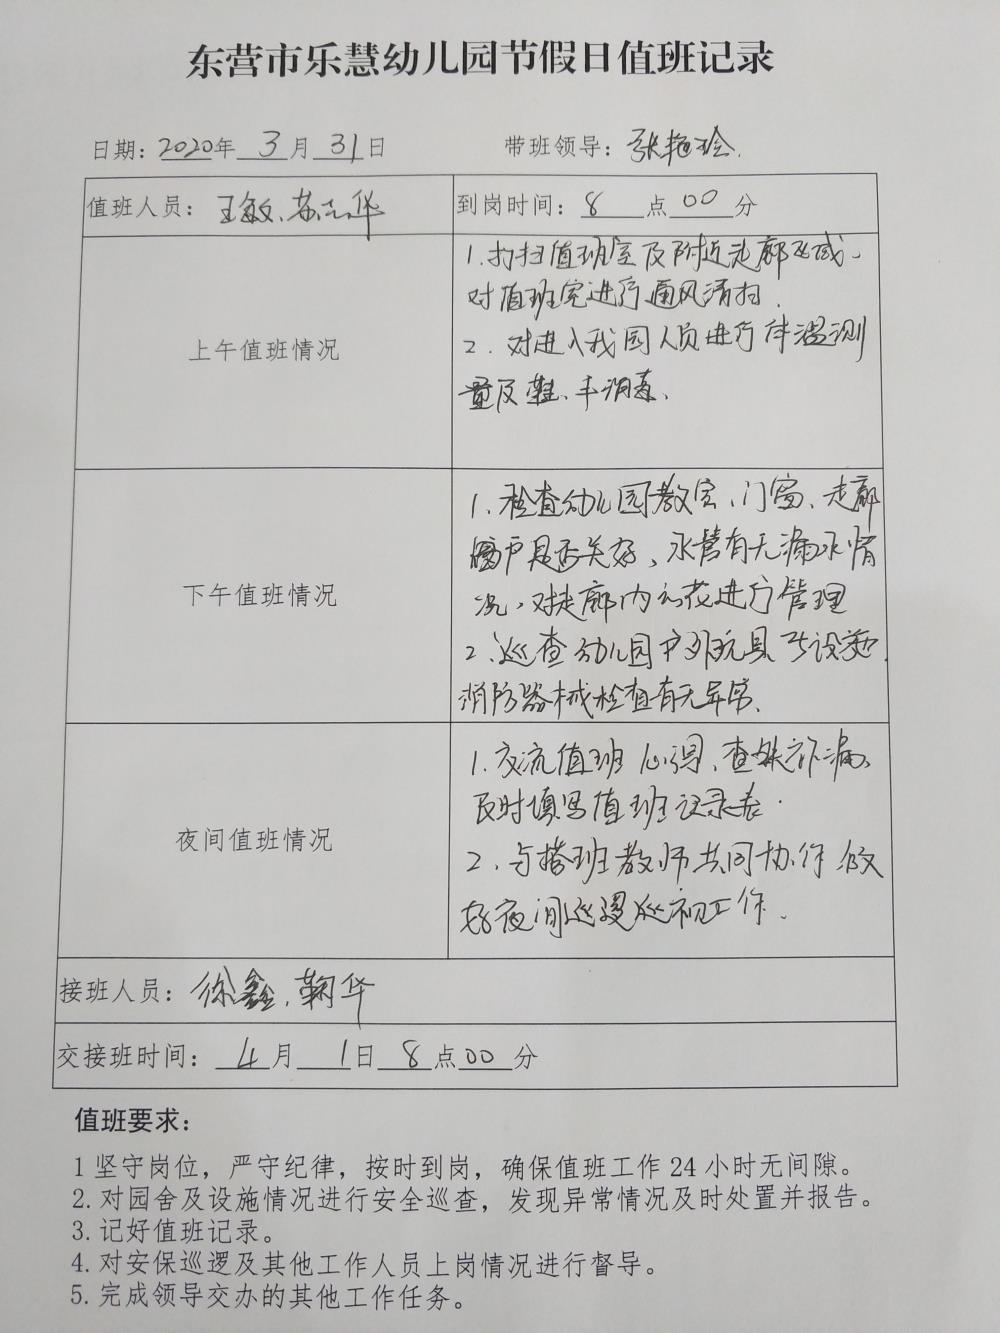 东营市乐慧幼儿园节假日值班记录
日期：2020年 3 月 31 日 带班领导：张艳玲.
值班人员：王敏、苏志华 到岗时间：8 点 00 分
上午值班情况
1.打扫值班室及附近走廊区域、
对值班室进行通风清扫.
2.对进入我园人员进行体温测
量及鞋、手消毒、
下午值班情况
1.检查幼儿园教室、门窗、走廊
窗户是否关好、水管有无漏水情
况、对走廊内的花进行管理
2.巡查幼儿园户外玩具与设施.
消防器械检查有无异常.
夜间值班情况
1.交流值班心得、查缺补漏、
及时填写值班记录表.
2.与搭班教师共同协作做
好夜间巡逻巡视工作.
接班人员：徐鑫、鞠华
交接班时间：4 月 1 日 8 点 00 分
值班要求：
1 坚守岗位，严守纪律，按时到岗，确保值班工作 24 小时无间隙。
2.对园舍及设施情况进行安全巡查，发现异常情况及时处置并报告。
3.记好值班记录。
4.对安保巡逻及其他工作人员上岗情况进行督导。
5.完成领导交办的其他工作任务。